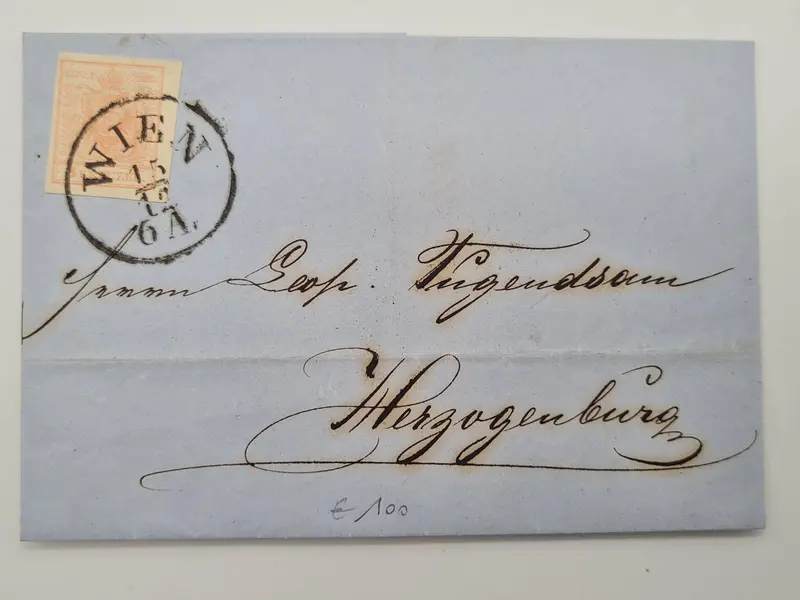 WIEN
15
6 A.
Herrn Leop. Tugendsam
Herzogenburg
€ 100